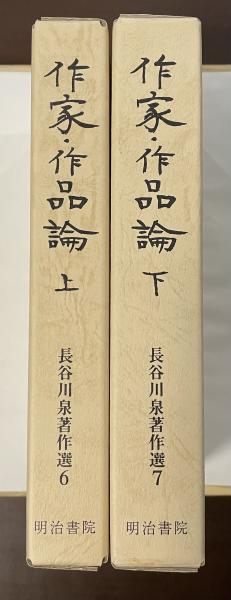 作家・作品論 上
長谷川泉著作選6
明治書院
作家・作品論 下
長谷川泉著作選7
明治書院